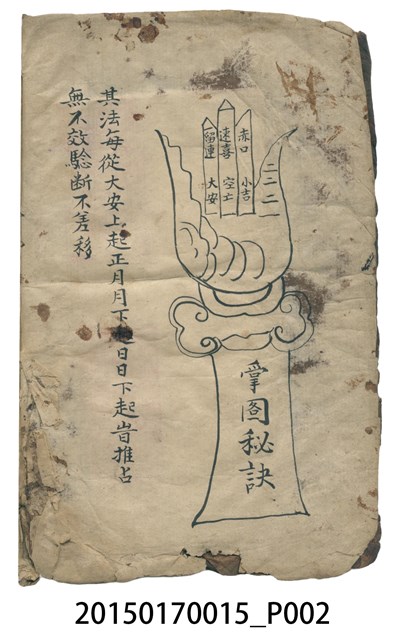 赤口
速喜
留連
小吉
空亡
大安
掌图秘訣
其法每從大安上起正月月下起日日下起旹推占
無不效驗断不差移
20150170015_P002